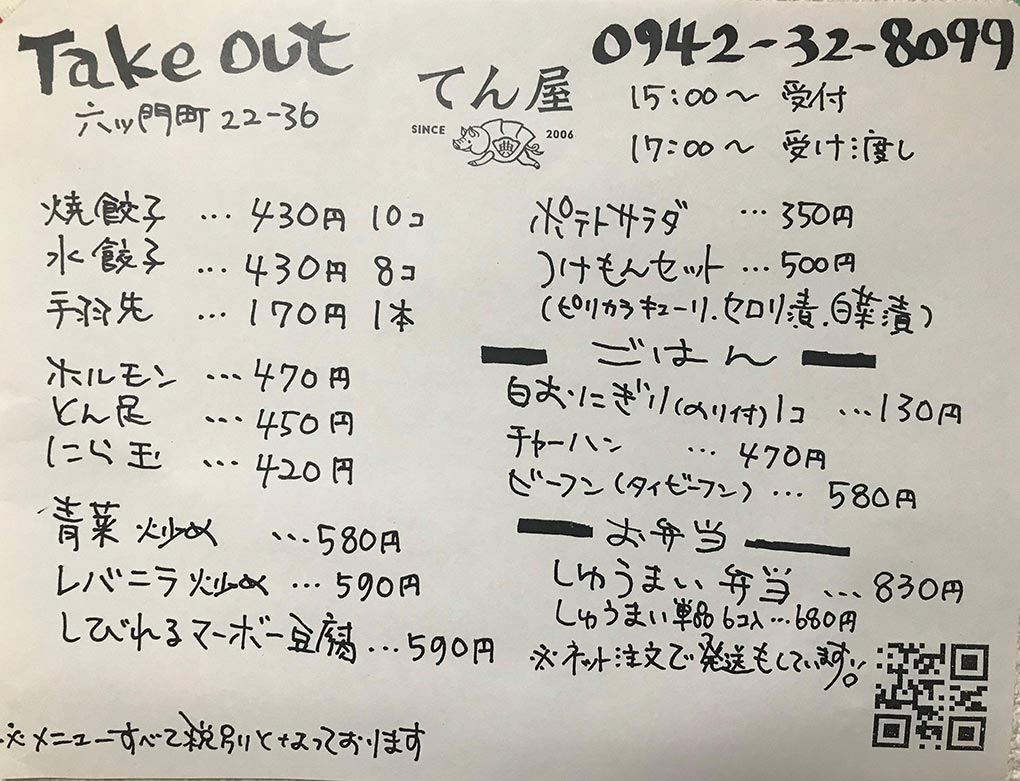 Take out
六ツ門町22-36
てん屋
SINCE 2006
典
0942-32-8099
15:00〜 受付
17:00〜 受け渡し
焼餃子 … 430円 10コ
水餃子 … 430円 8コ
手羽先 … 170円 1本
ホルモン … 470円
とん足 … 450円
にら玉 … 420円
青菜炒め … 580円
レバニラ炒め … 590円
しびれるマーボー豆腐 … 590円
※メニューすべて税別となっております
ポテトサラダ … 350円
つけもんセット … 500円
(ピリカラキューリ.セロリ漬.白菜漬)
ごはん
白おにぎり(のり付)1コ … 130円
チャーハン … 470円
ビーフン(タイビーフン) … 580円
お弁当
しゅうまい弁当 … 830円
しゅうまい単品6コ入 … 680円
※ネット注文で発送もしています!!